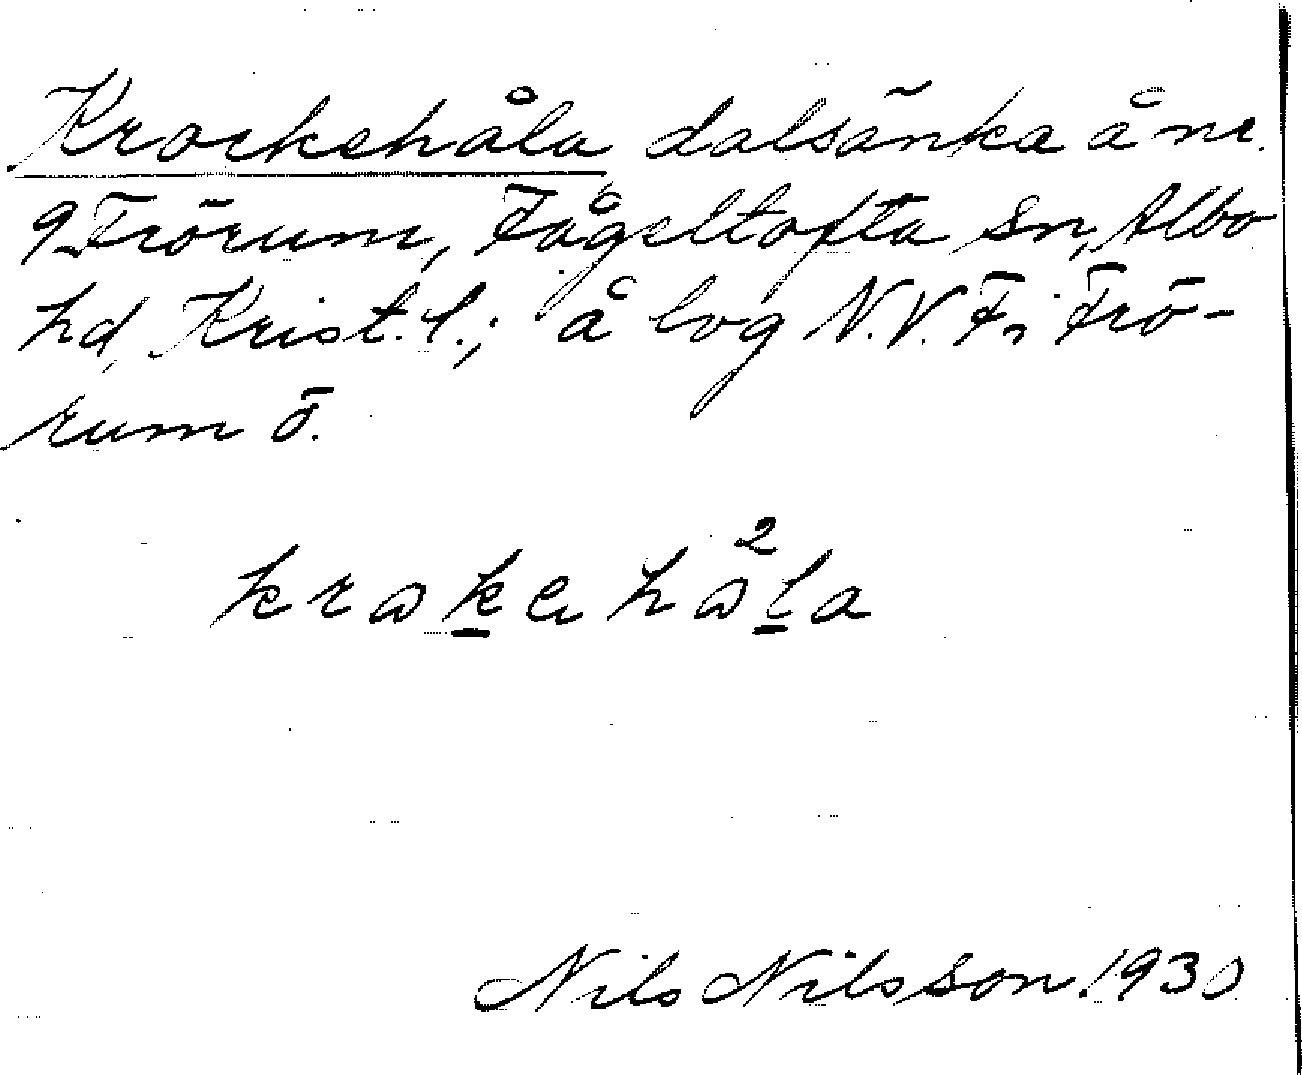 Krockehåla dalsänka å nr.
9 Frörum, Fågeltofta Sn, Albo
hd, Krist. l.; å log N.V. F. Frö-
rum ö.
krakehala
2
Nils Nilsson 1930